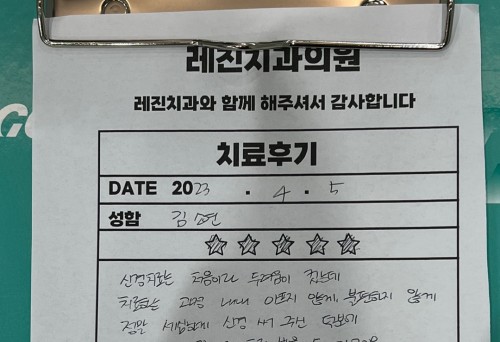 레진치과의원
레진치과와 함께 해주셔서 감사합니다
치료후기
DATE 2023 . 4 . 5
성함 김 연
신경치료는 처음이라 두려움이 컸는데
치료하는 과정 내내 아프지 않게, 불편하지 않게
정말 세심하게 신경 써 주신 덕분에